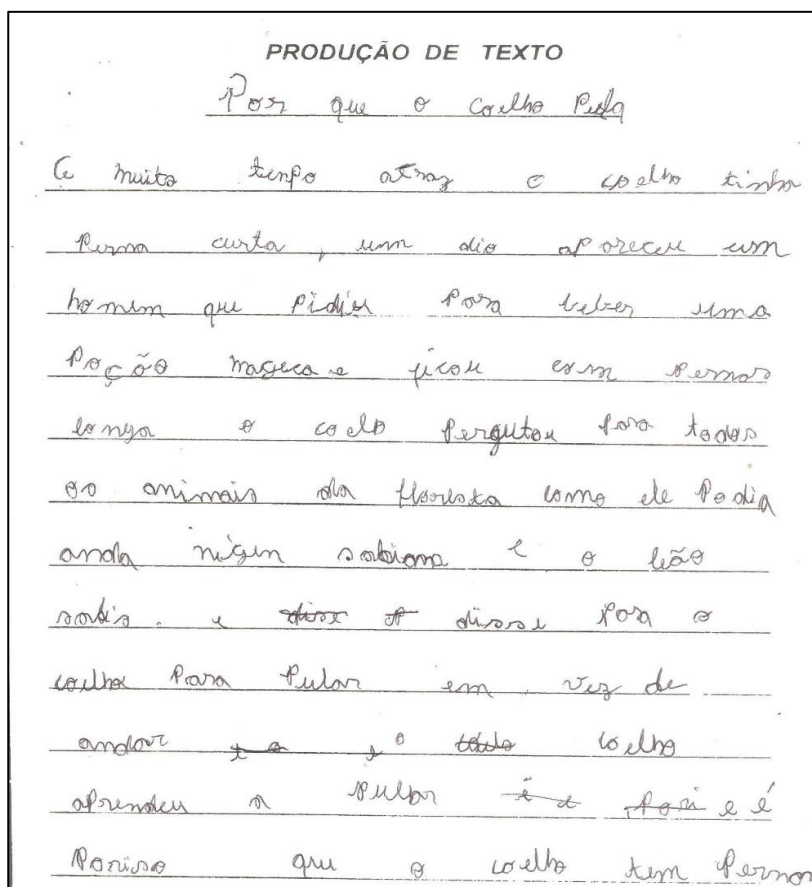 PRODUÇÃO DE TEXTO
Por que o Coelho Pula
muito tenpo atraz o coelho tinha
Perna curta, um dia apareceu um
homem que pidiu Para beber uma
Poção mageca e ficou com pernas
longa o coelo Pergutou Para todos
os animais da floresta como ele Podia
anda nigen sabiam e o leão
sabia. e disse Para o
coelho Para Pular em vez de
andar o coelho
aprendeu a pular e é
Poriso que o coelho tem Pernas